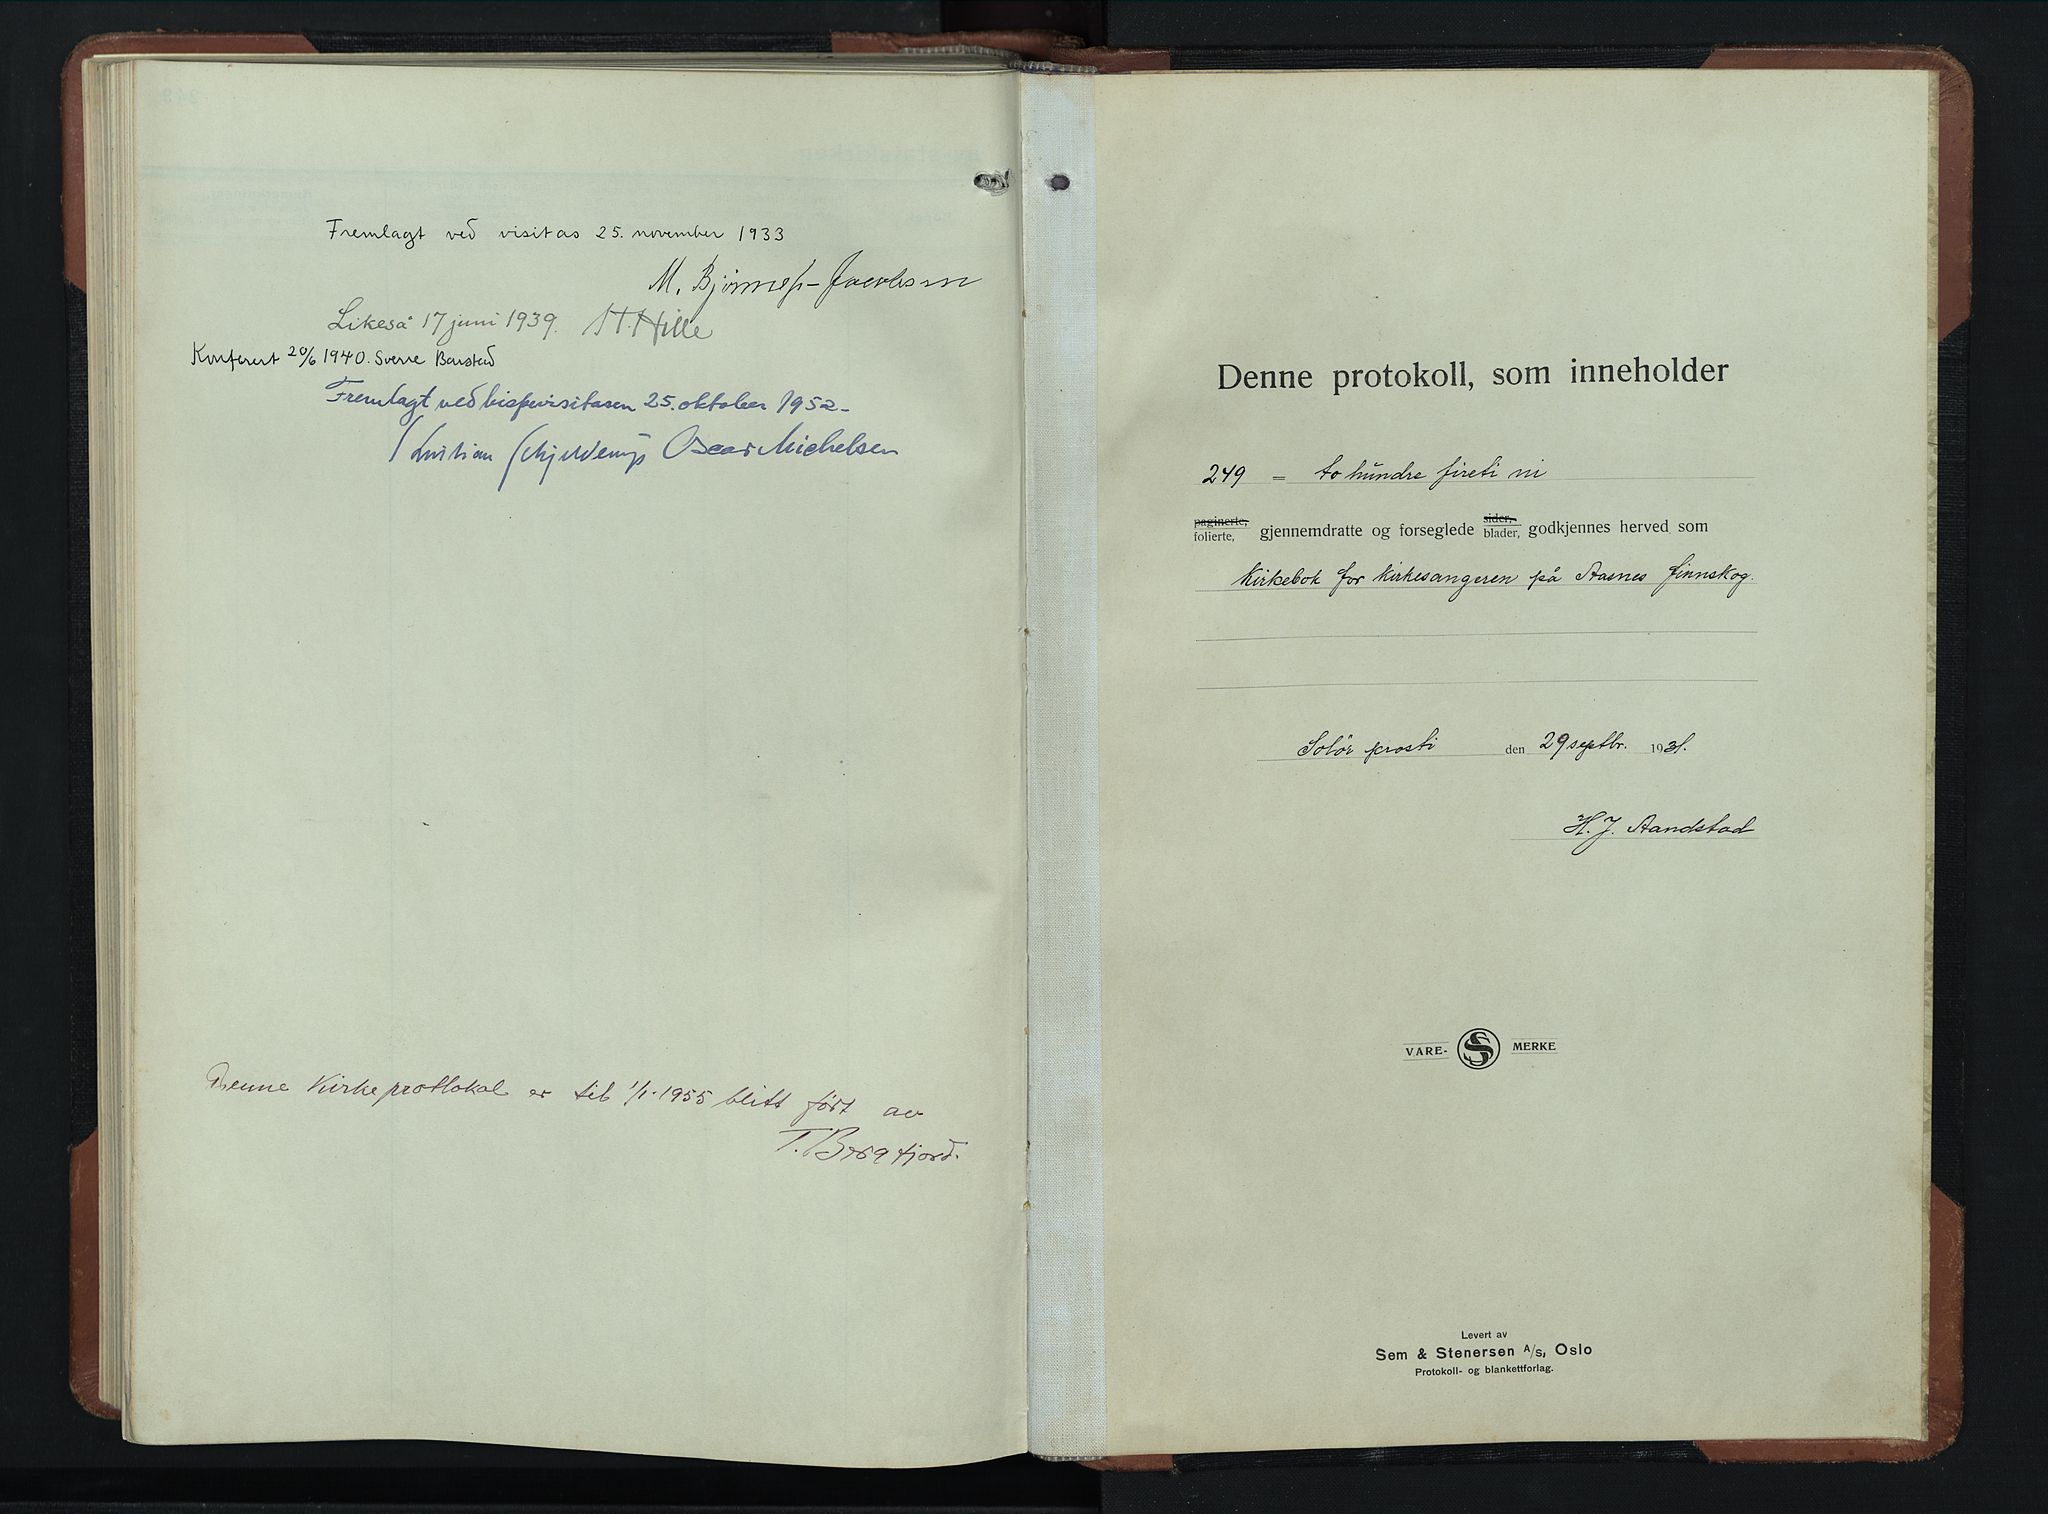 Fremlagt ved visitas 25. november 1933
M. Bjønnes-Jacobsen
Likeså 17 juni 1939. H. Hille
Konferert 20/6 1940. Sverre Barstad
Fremlagt ved bispevisitasen 25. oktober 1952-
Kristian Schjelderup Oscar Michelsen
Denne Kirkeprottokal er til 1/1-1955 blitt ført av
T. Bergfjord.
Denne protokoll, som inneholder
249 = to hundre fireti ni
paginerte, folierte, gjennemdratte og forseglede sider, blader, godkjennes herved som
Kirkebok for kirkesangeren på Aasnes finnskog.
Solør prosti den 29 septbr. 1931.
H. J. Aandstad
VARE- S MERKE
Levert av
Sem & Stenersen A/s, Oslo
Protokoll- og blankettforlag.